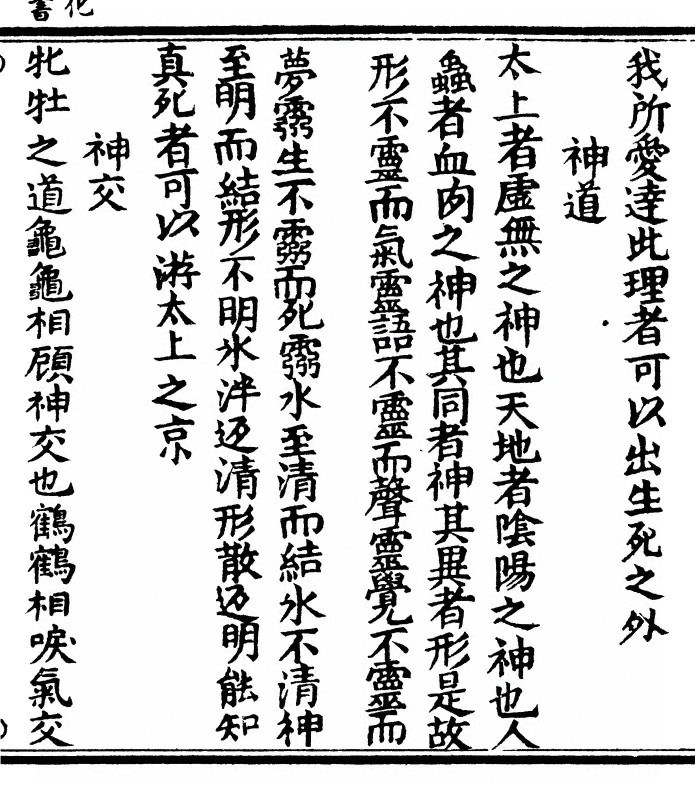 化
書
我所愛達此理者可以出生死之外
神道
太上者虛無之神也天地者陰陽之神也人
蟲者血肉之神也其同者神其異者形是故
形不靈而氣靈語不靈而聲靈覺不靈而
夢靈生不靈而死靈水至清而結冰不清神
至明而結形不明冰泮返清形散返明能知
真死者可以游太上之京
神交
牝牡之道龜龜相顧神交也鶴鶴相唳氣交